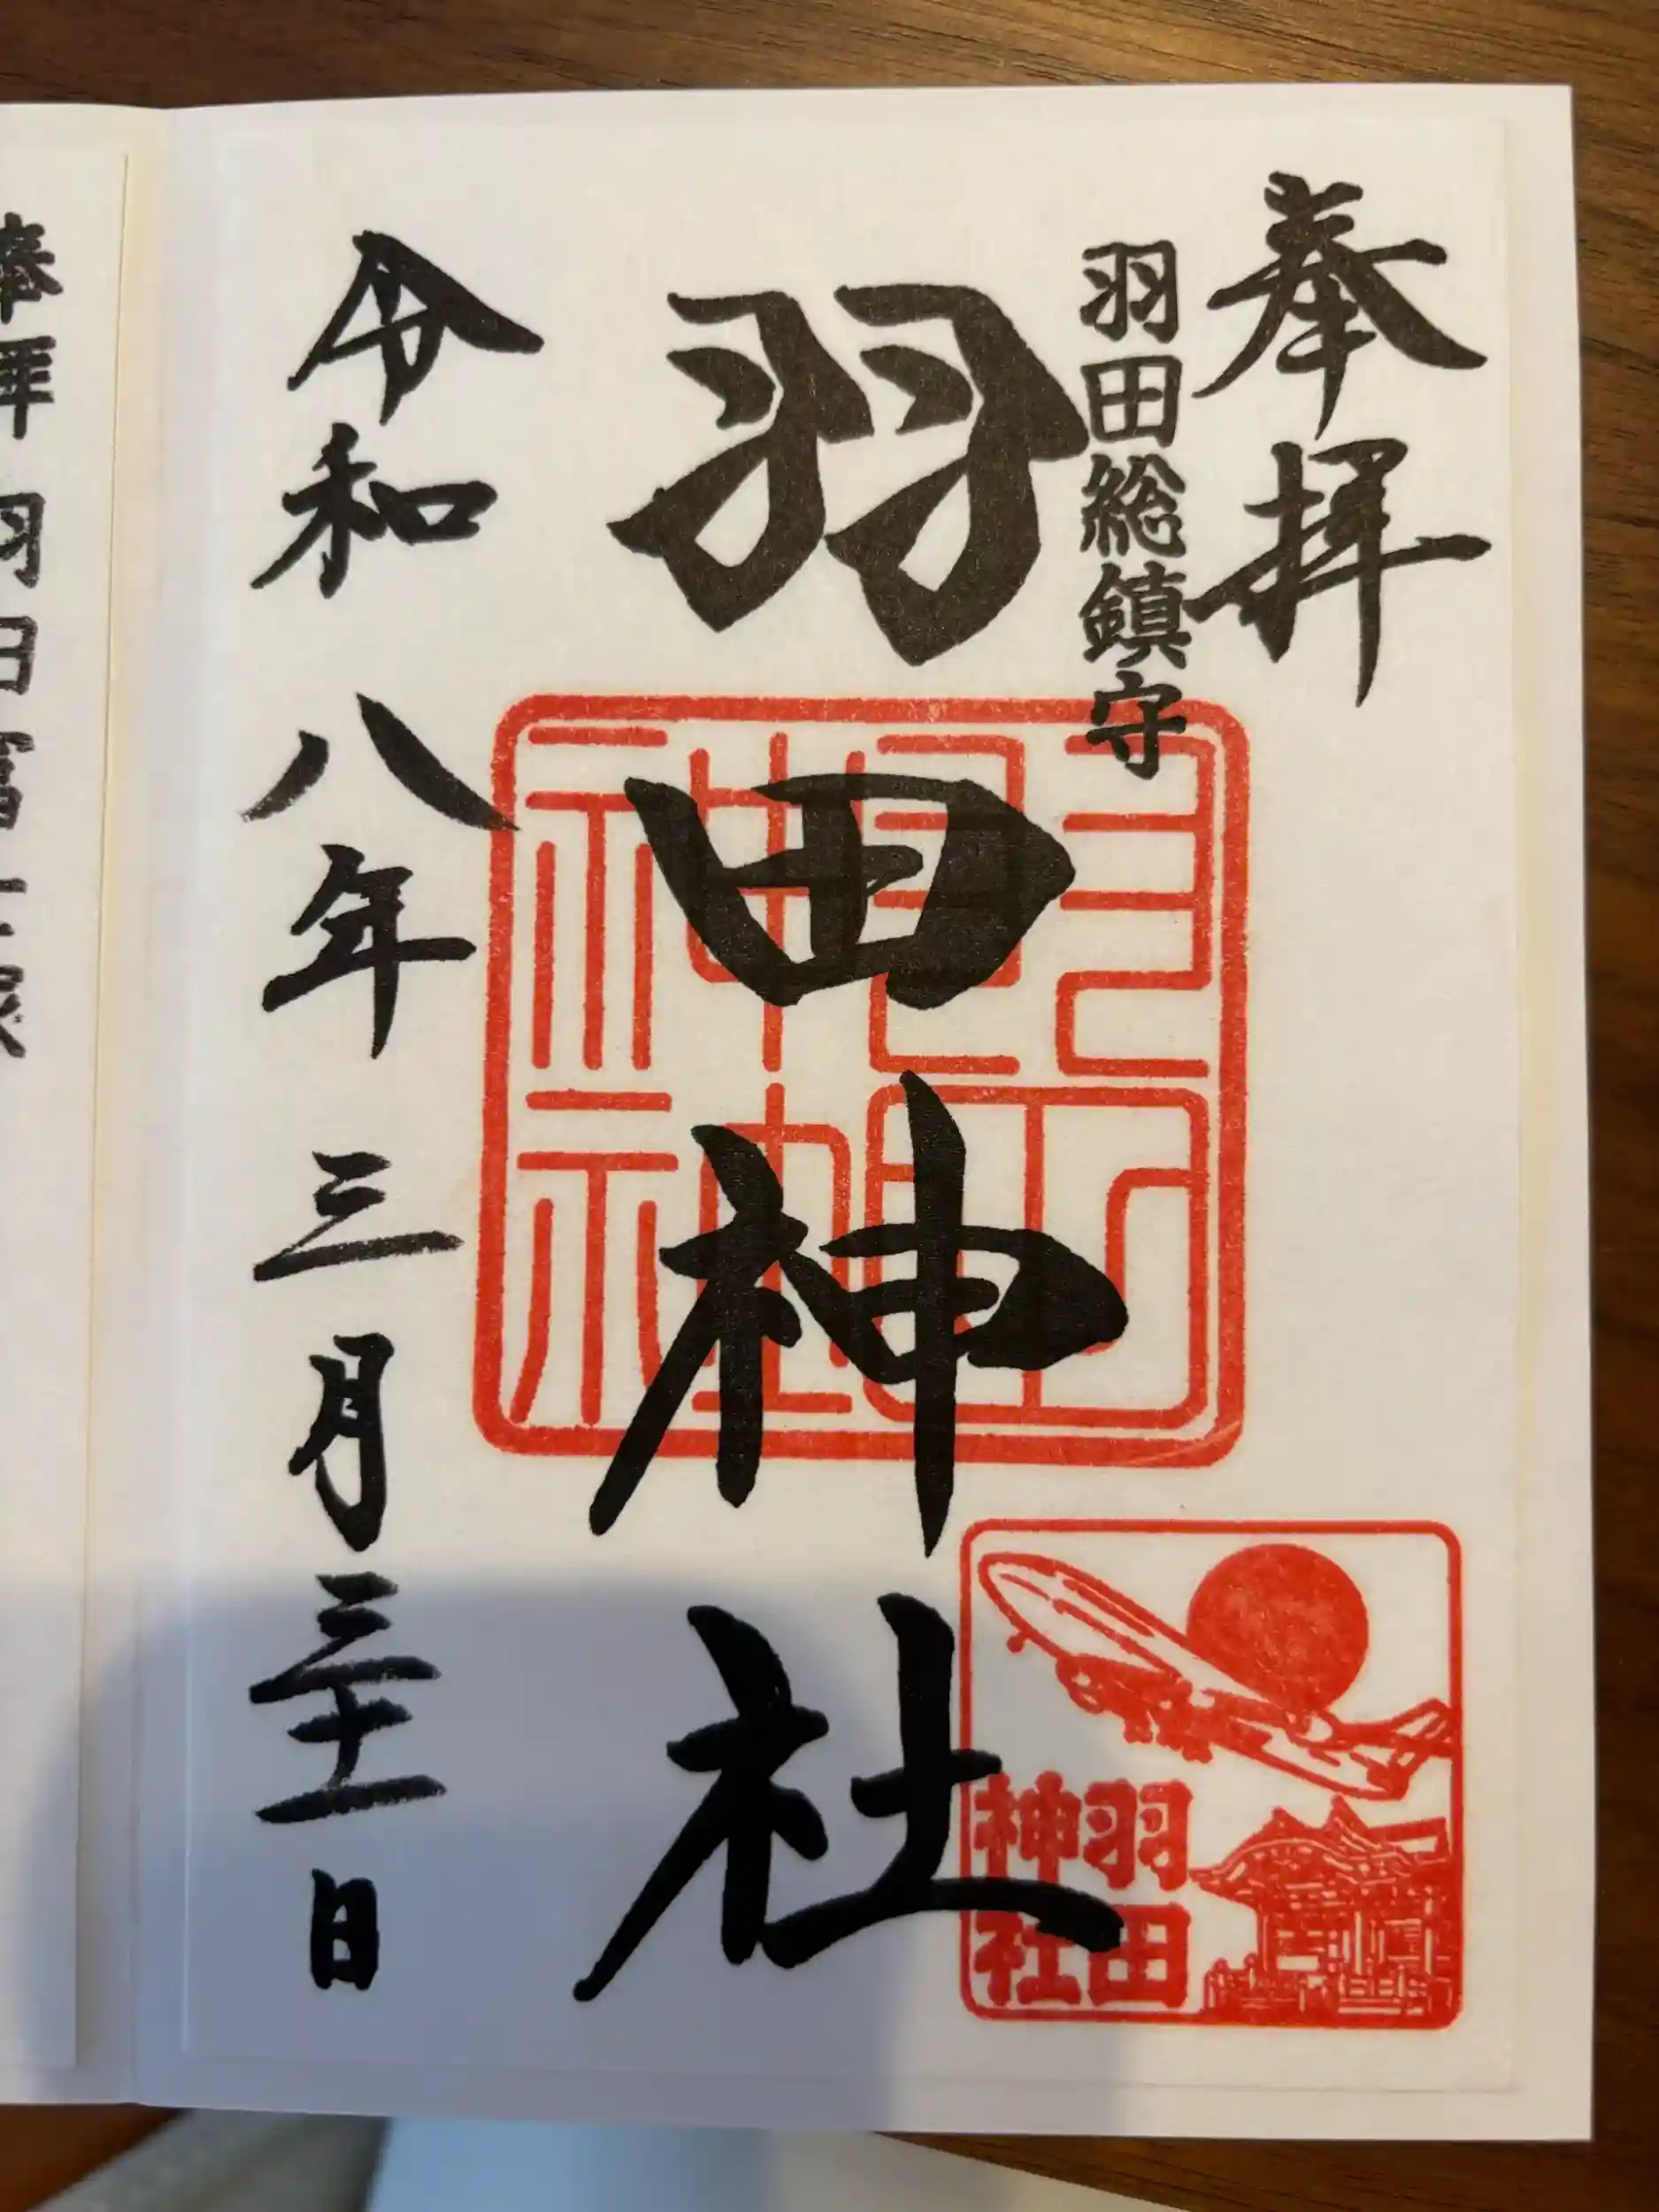 奉拝
羽田総鎮守
羽田神社
羽田神社
羽田
神社
令和八年三月三十一日
奉拝 羽田富士塚